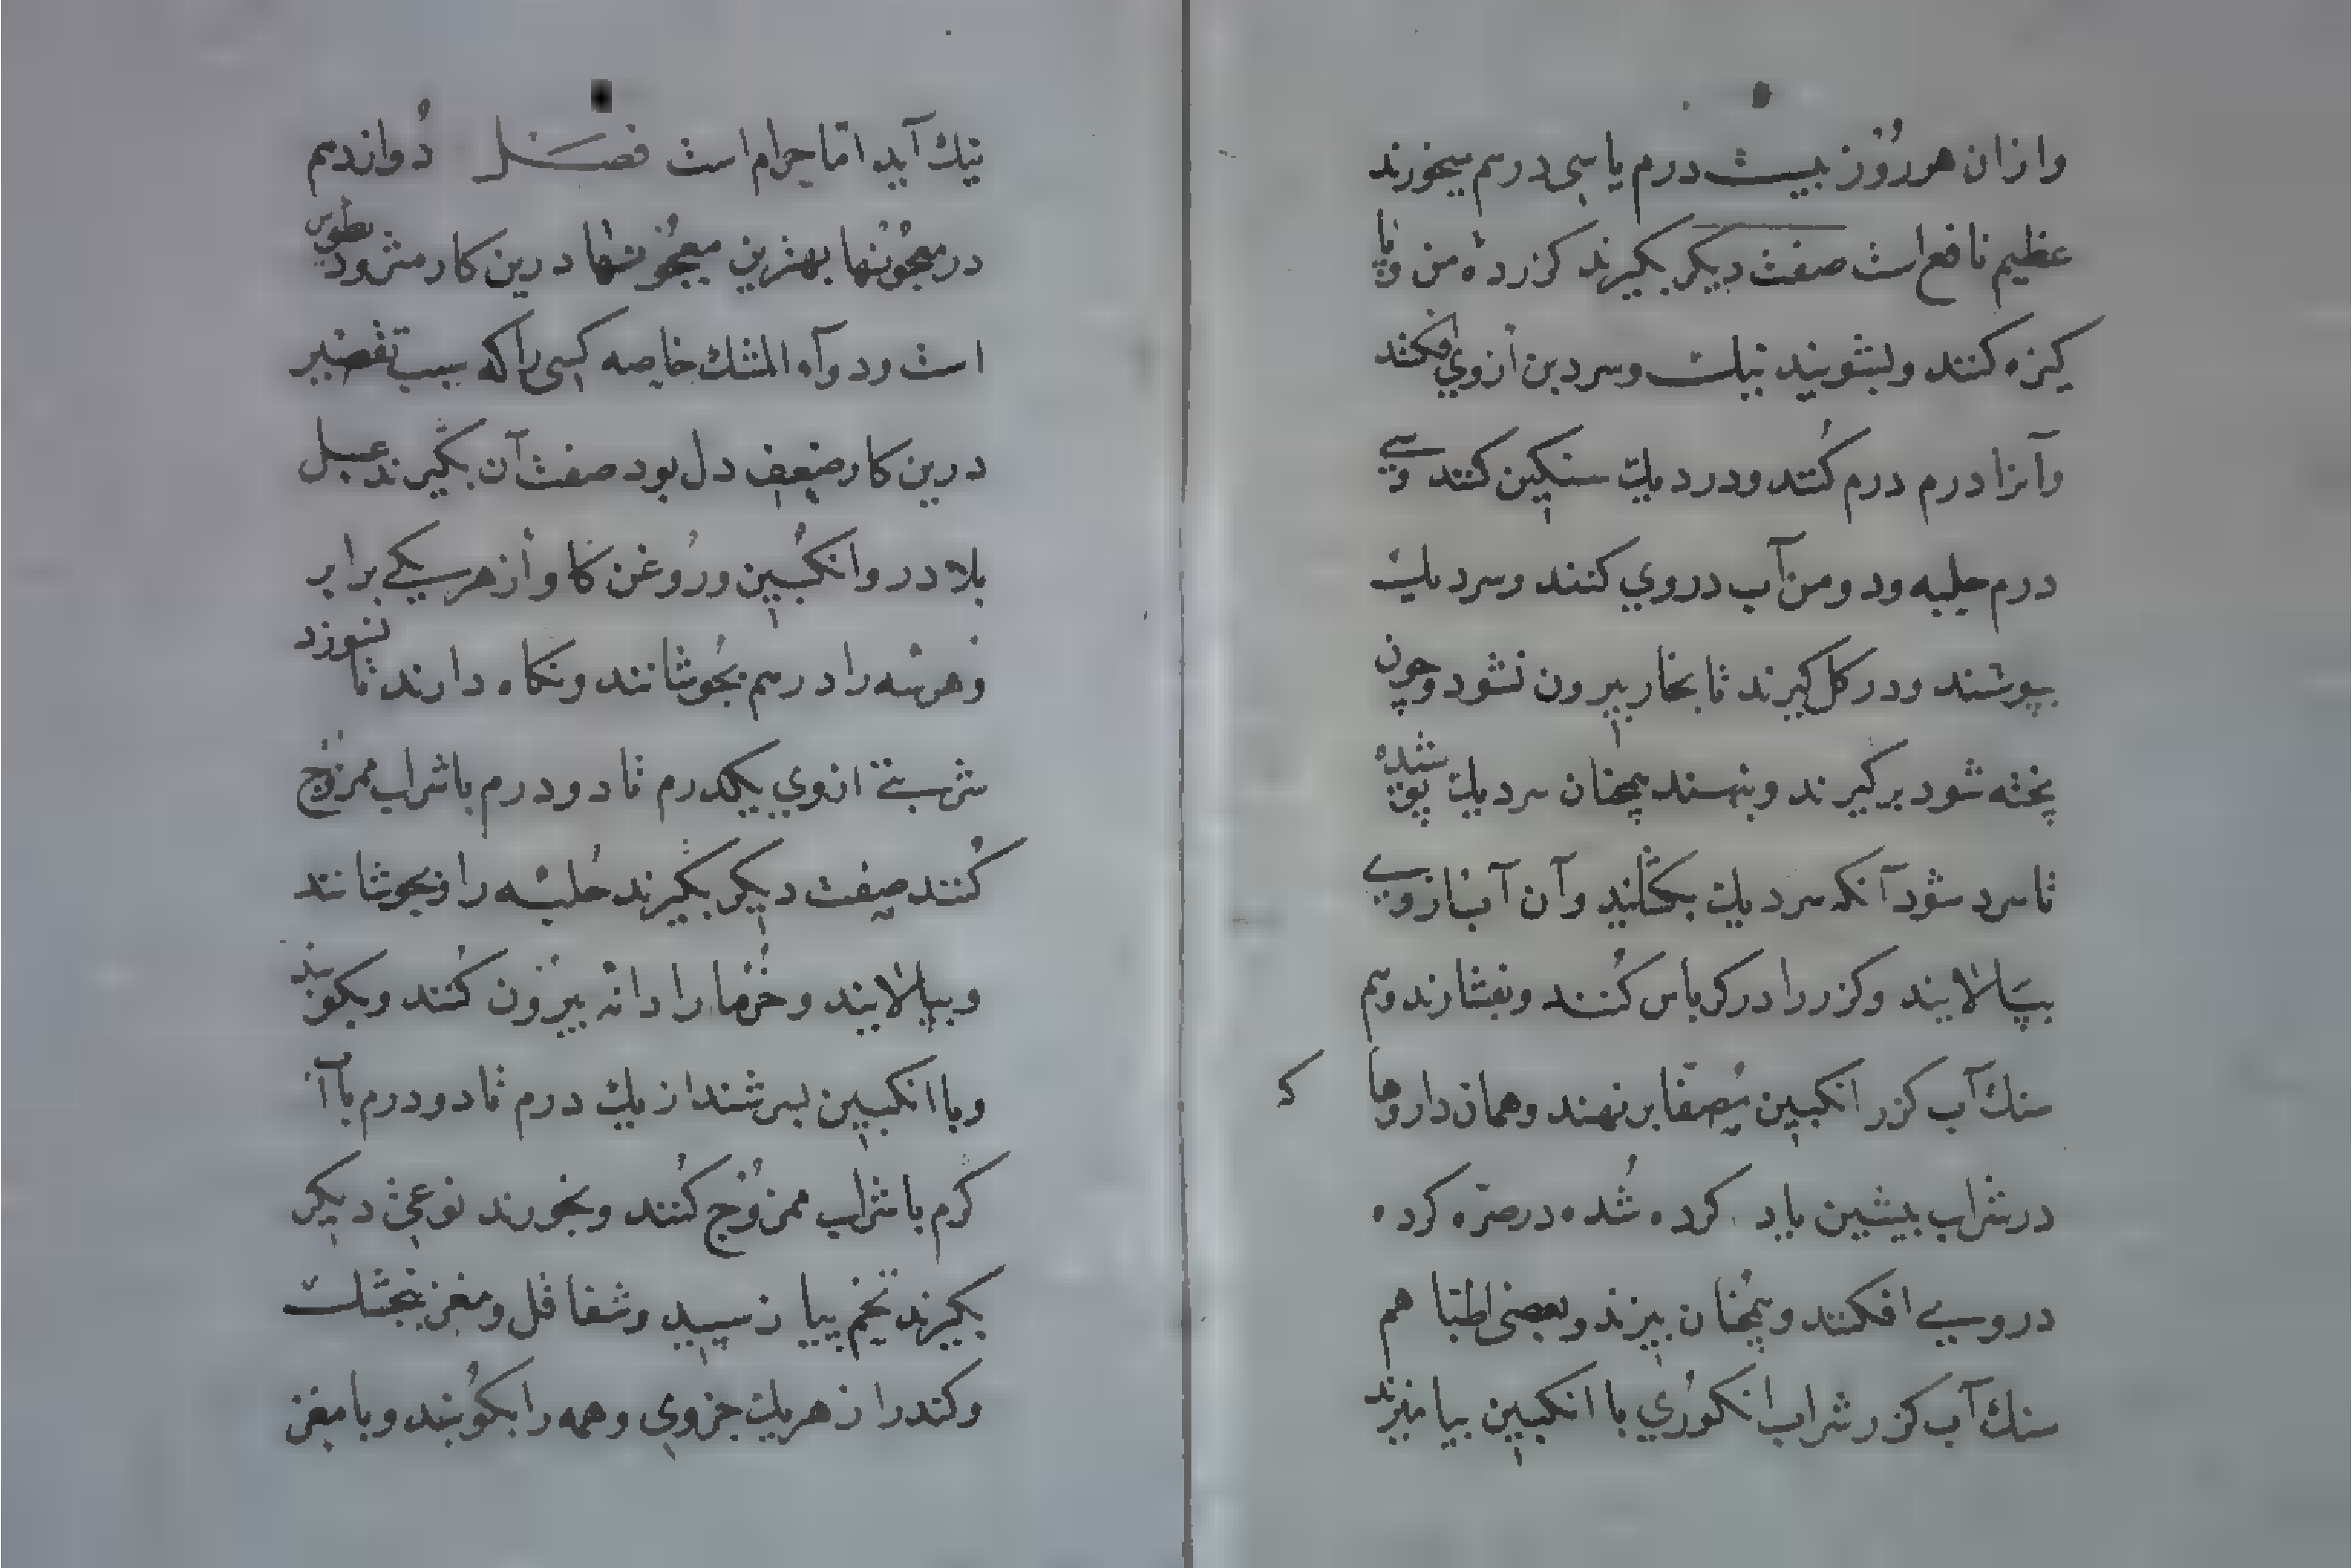 وازان هر روز بیست درم یا سی درم میخورند
عظیم نافع است صفت دیکر بکیرند کزر ده من و پا
کیزه کنند و بشویند نیك و سر و بن ازوی افکنند
وآنرا درم درم کنند و در دیك سنکین کنند و سی
درم حلبه و دو من آب در وی کنند و سر دیك
بپوشند و در کل کیرند تا بخار بیرون نشود و چون
پخته شود برکیرند و بنهند همچنان سر دیك پوشیده
تا سرد شود آنکه سر دیك بکشایند و آن آب ازوی
بپالایند و کزر را در کرباس کنند و بفشارند و هم
سنك آب کزر انکبین مصفا برنهند و همان داروها
که
در شراب پیشین یاد کرده شده در صره کرده
در وی افکنند و همچنان بپزند و بعضی اطبا هم
سنك آب کزر شراب انکوری با انکبین بیامیزند
نیك آید اما حرام است فصل دوازدهم
در معجونها بهترین معجونها درین کار مثرودیطوس
است و دوآء المشك خاصه کسی را که سبب تقصیر
درین کار ضعف دل بود صفت آن بکیرند عسل
بلادر و انکبین و روغن کاو از هر یکی برابر
و هر سه را در هم بجوشانند و نکاه دارند تا نسوزد
شربتی ازوی یکدرم تا دو درم با شراب ممزوج
کنند صفت دیکر بکیرند حلبه را و بجوشانند
و بپالایند و خرما را دانه بیرون کنند و بکوبند
و با انکبین بسرشند از یك درم تا دو درم با آب
کرم با شراب ممزوج کنند و بخورند نوعی دیکر
بکیرند تخم پیاز سپید و شقاقل و مغز بنجشك
و کندر از هر یك جزوی و همه را بکوبند و با مغز